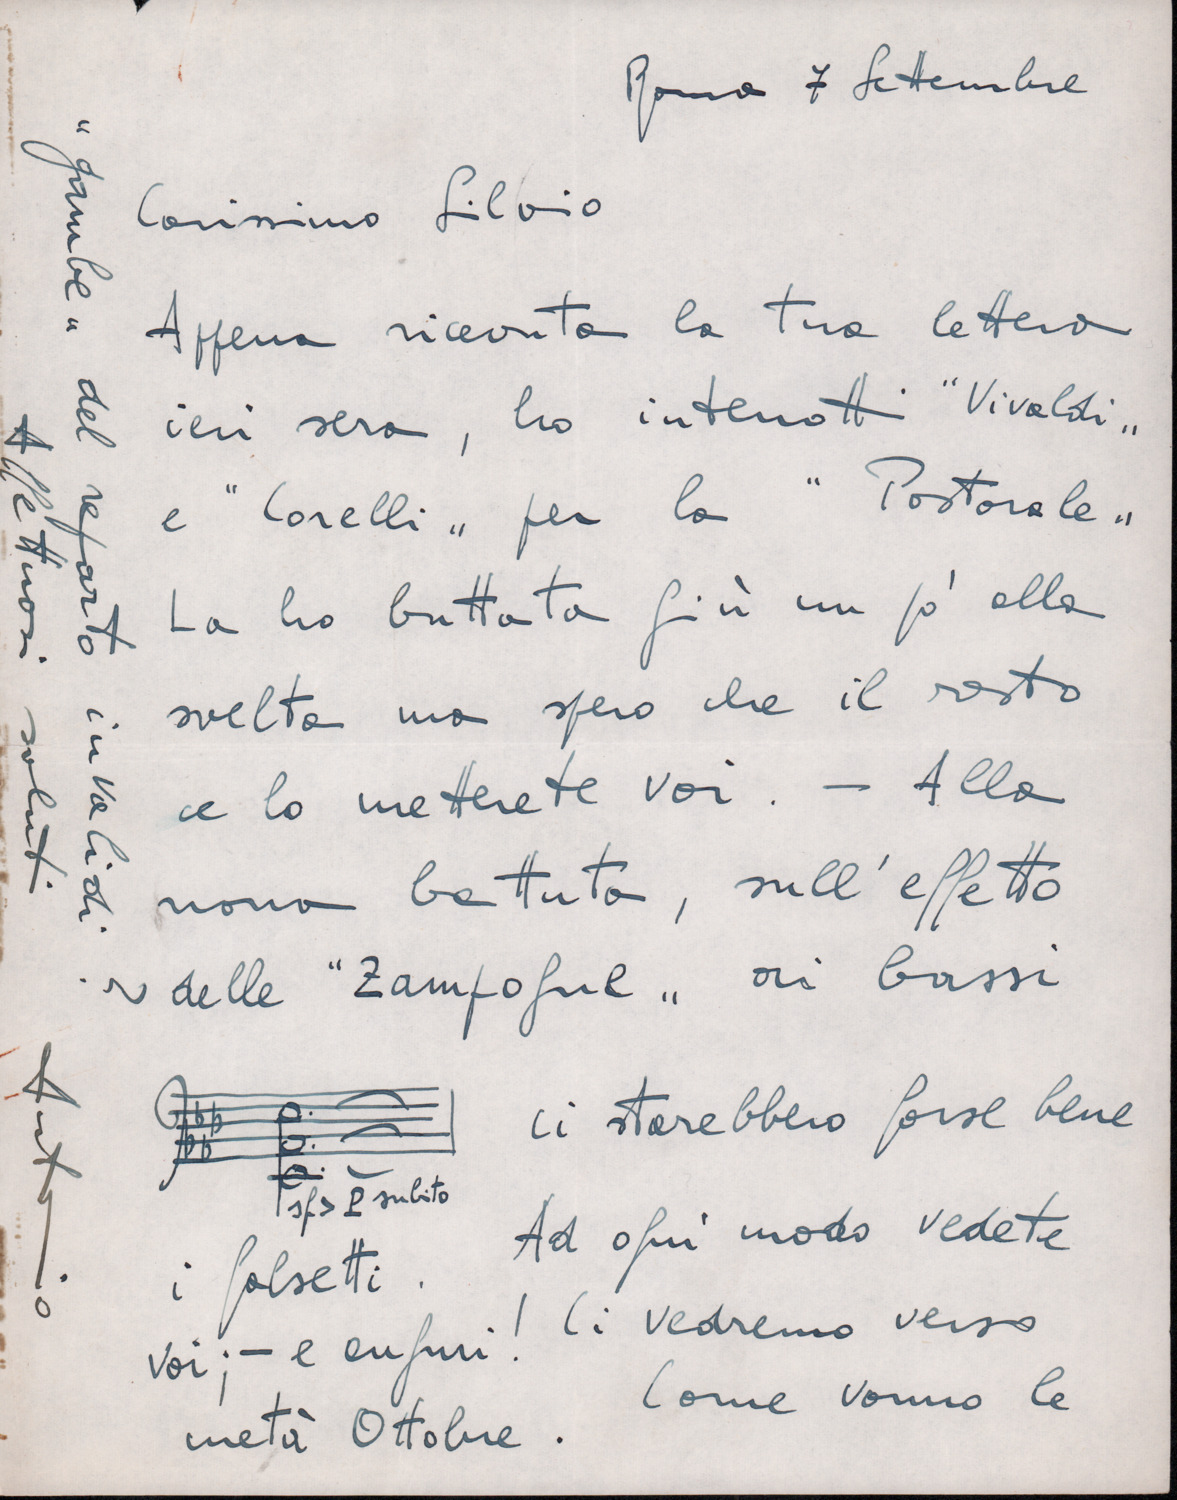 Roma 7 Settembre
Carissimo Silvio
Appena ricevuta la tua lettera
ieri sera, ho interrotti "Vivaldi„
e "Corelli„ per la "Pastorale„
La ho buttata giù un pò alla
svelta ma spero che il resto
ce lo metterete voi. — Alla
nona battuta, sull'effetto
delle "Zampogne„ ai bassi
sf> p subito
ci starebbero forse bene
i falsetti. Ad ogni modo vedete
voi; — e auguri! Ci vedremo verso
metà Ottobre. Come vanno le
"gambe" del reparto invalidi.
Affettuosi saluti